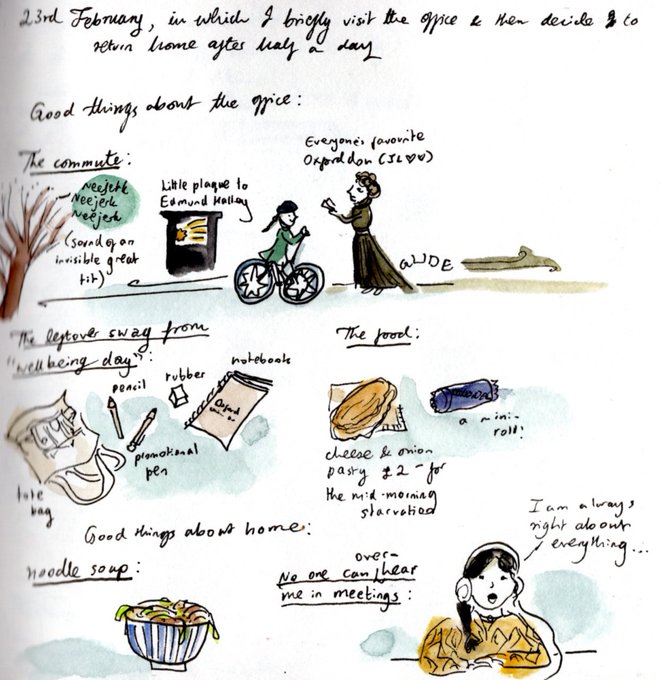 23rd February, in which I briefly visit the office & then decide to
return home after half a day
Good things about the office:
The commute:
Neejerk
Neejerk
Neejerk
(sound of an
invisible great
tit)
Little plaque to
Edmund Halley
Everyone's favourite
Oxford don (JL♡♡)
GLIDE
The leftover swag from
"wellbeing day":
pencil
rubber
notebooks
Oxford
promotional
pen
tote
bag
The food:
cheese & onion
pasty £2 - for
the mid-morning
starvation
a mini-
roll!
Good things about home:
noodle soup:
No one can over-hear
me in meetings:
I am always
right about
everything...